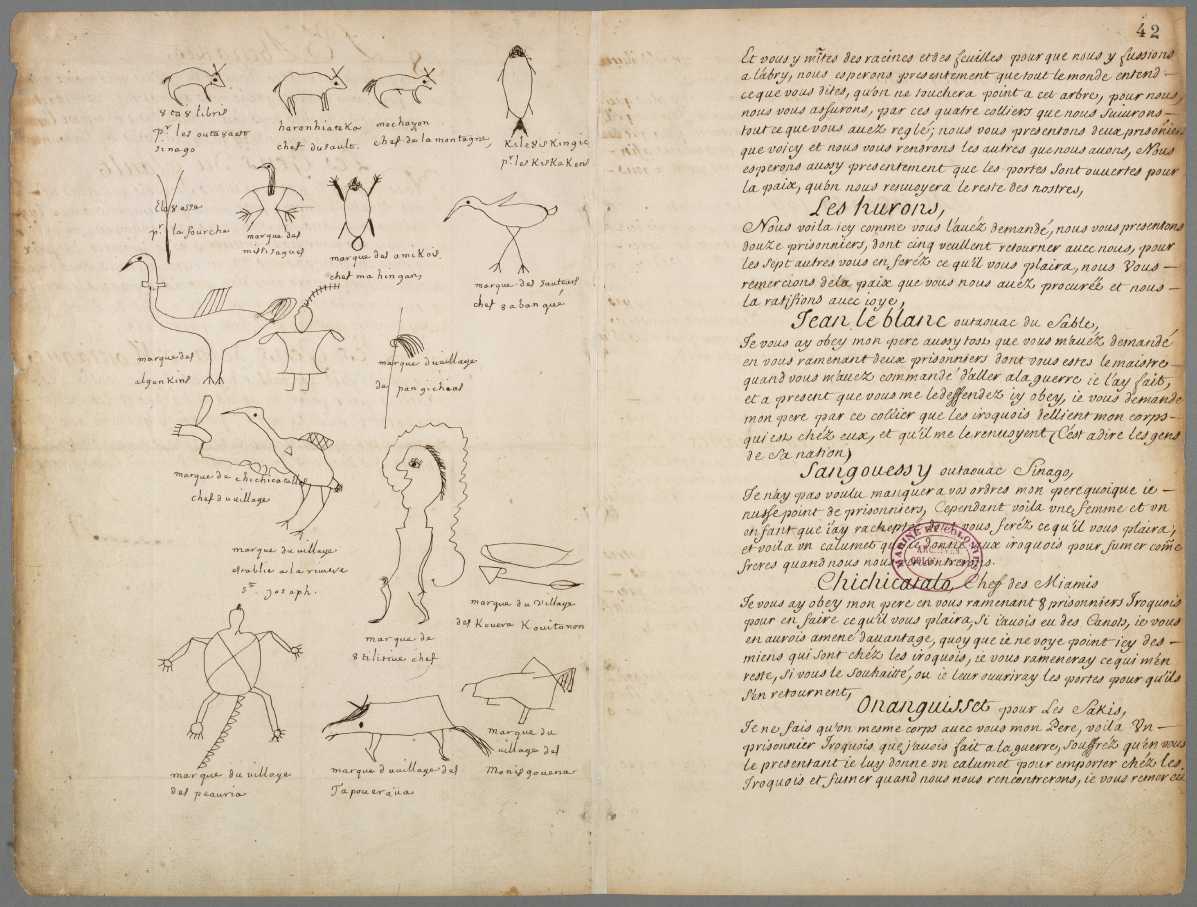 42
8ta8libris
pr. les outa8acs
sinago
haronhiateka
chef dusault.
mechayon
chef de la montagne,
Kile8iskingie
pr. les KisKaKons
Elo8assa
pr. la fourche
marque des
missisagues
marque des amikois
chef mahingan,
marque des sauteurs
chef 8abangué
marque des
algonkins
marque duvillage
de pangicheas
marque de chichicatallo
chef duvillage
marque du village
establie a la riviere
st. joseph.
marque de
8tilirine chef
marque du village
des Kouera Kouitanon
marque du village
des peauria
marque duvillage des
Tapouerąüa
marque du
uillage des
Monisgouena
Et vous y mîtes des racines et des feuilles pour que nous y fussions
a l'abry, nous esperons presentement que tout le monde entend –
ce que vous dites, qu'on ne touchera point a cet arbre, pour nous,
nous vous assurons, par ces quatre colliers que nous suiurons –
tout ce que vous auez reglé; nous vous presentons deux prisoñiers
que voicy et nous vous rendrons les autres que nous auons, Nous
esperons aussy presentement que les portes sont ouuertes pour
la paix, qu'on nous renuoyera le reste des nostres,
Les hurons,
Nous voila icy comme vous l'auéz demandé, nous vous presentons
douze prisonniers, dont cinq veullent retourner auec nous, pour
les sept autres vous en feréz ce qu'il vous plaira, nous Vous –
remercions de la paix que vous nous auéz procurée et nous –
la ratifions auec joye,
Jean le blanc outaouac du Sable,
Je vous ay obey mon pere aussytost que vous m'auéz demandé
en vous ramenant deux prisonniers dont vous estes le maistre –
quand vous m'auéz commandé d'aller a la guerre ie l'ay fait,
et a present que vous me le deffendéz iy obey, ie vous demande
mon pere par ce collier que les iroquois dellient mon corps –
qui est chéz eux, et qu'il me le renuoyent (C'est a dire les gens
de sa nation)
Sangouessy outaouac Sinago,
Je n'ay pas voulu manquer a vos ordres mon pere quoique ie –
n'usse point de prisonniers, Cependant voila vne femme et vn
enfant que i'ay racheptés, dont vous feréz ce qu'il vous plaira,
et voila vn calumet que ie donne aux iroquois pour fumer come
freres quand nous nous rencontrerons.
MARINE ET COLONIES
ARCHIVES
Chichicatalo Chef des Miamis
Je vous ay obey mon pere en vous ramenant 8 prisonniers Iroquois
pour en faire ce qu'il vous plaira, si i'auois eu des Canots, ie vous
en aurois amené dauantage, quoy que ie ne voye point icy des –
miens qui sont chéz les iroquois, ie vous rameneray ce qui m'en
reste, si vous le souhaitté, ou ie leur ouuriray les portes pour qu'ils
s'en retournent,
Onanguisset pour Les Sakis,
Je ne fais qu'on mesme corps auec vous mon Pere, voila Vn –
prisonnier Iroquois que j'auois fait a la guerre, souffréz qu'en vous
le presentant ie luy donne vn calumet pour emporter chéz les
Iroquois et fumer quand nous nous rencontrerons, ie vous remercie